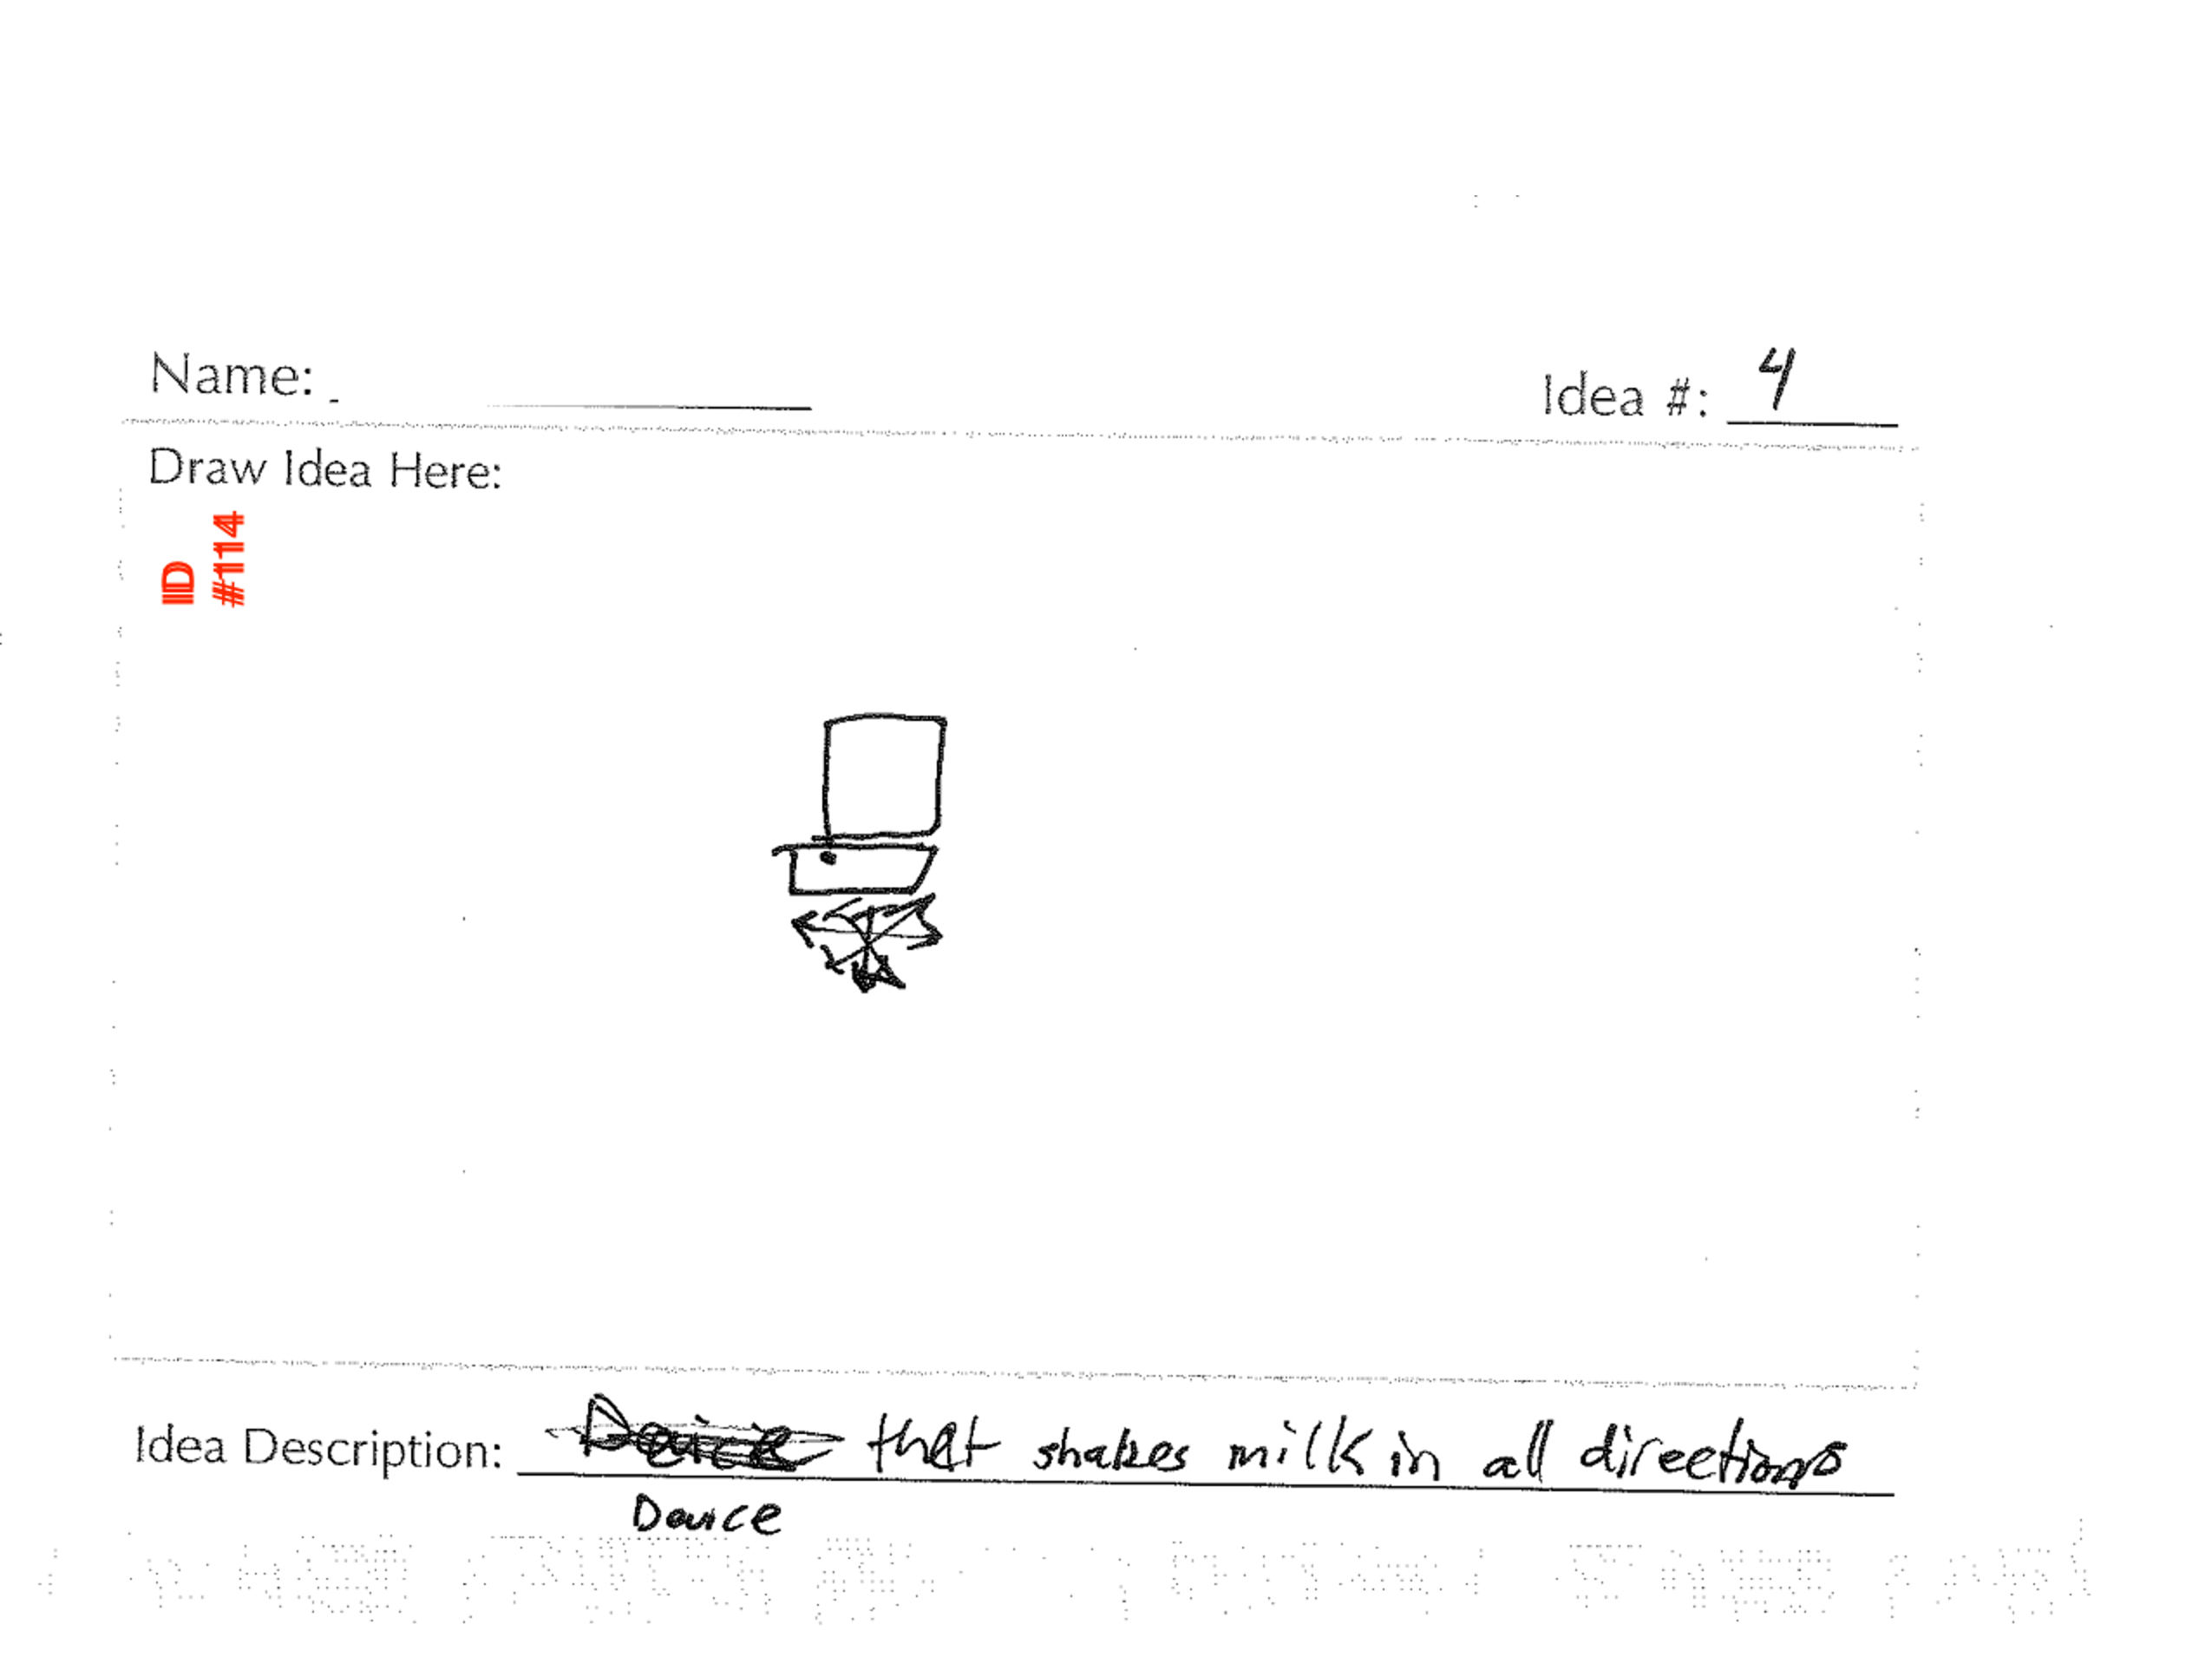 Name:
Idea #: 4
Draw Idea Here:
ID
#114
Idea Description: that shakes milk in all directions
Device